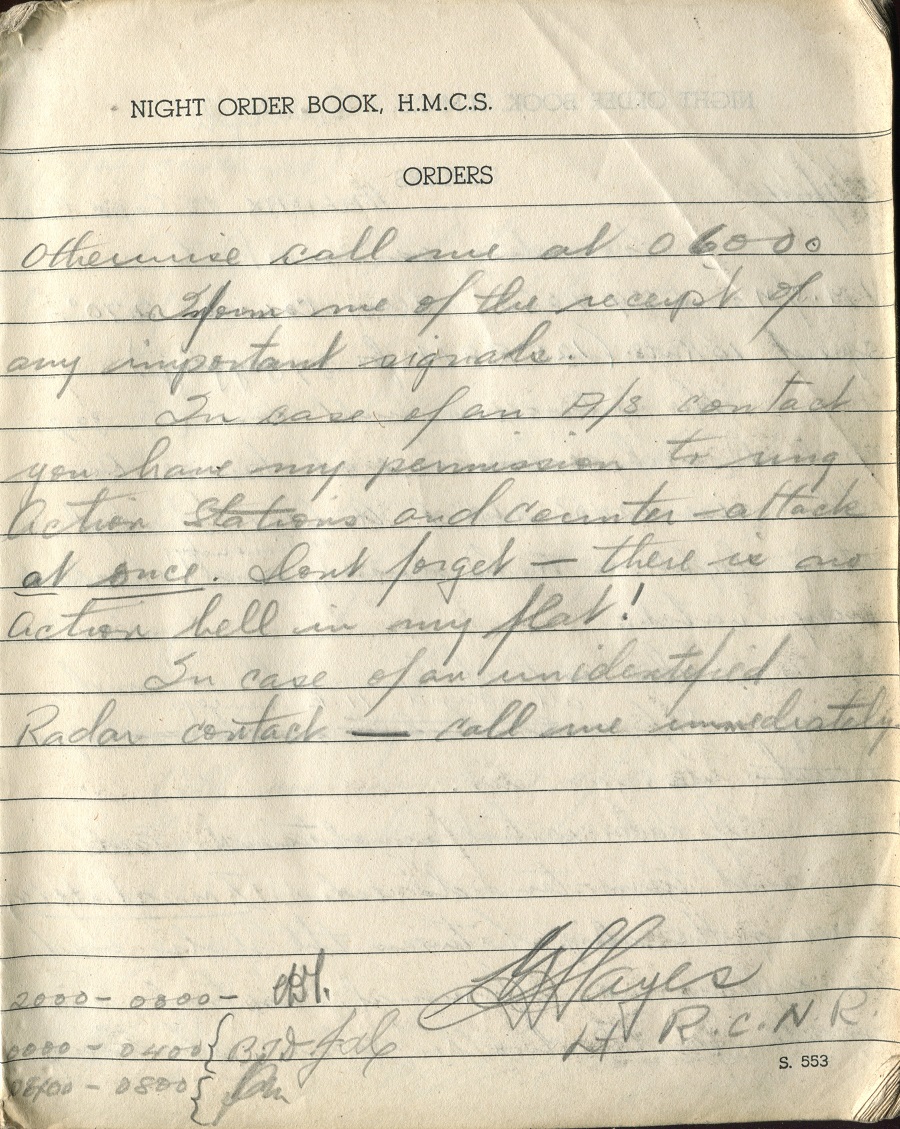 NIGHT ORDER BOOK, H.M.C.S.
ORDERS
Otherwise call me at 0600o
Inform me of the receipt of
any important signals.
In case of an A/S contact
you have my permission to ring
Action Stations and counter-attack
at once. Dont forget — there is no
Action bell in my flat!
In case of an unidentified
Radar contact — call me immediately
2000 - 0000 -
Hayes
0000 - 0400 {
Lt R.C.N.R.
0400 - 0800 {
S. 553